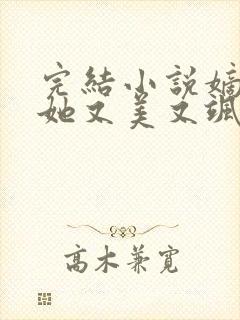 完結小說嫡
她又美又颯
高木兼寬